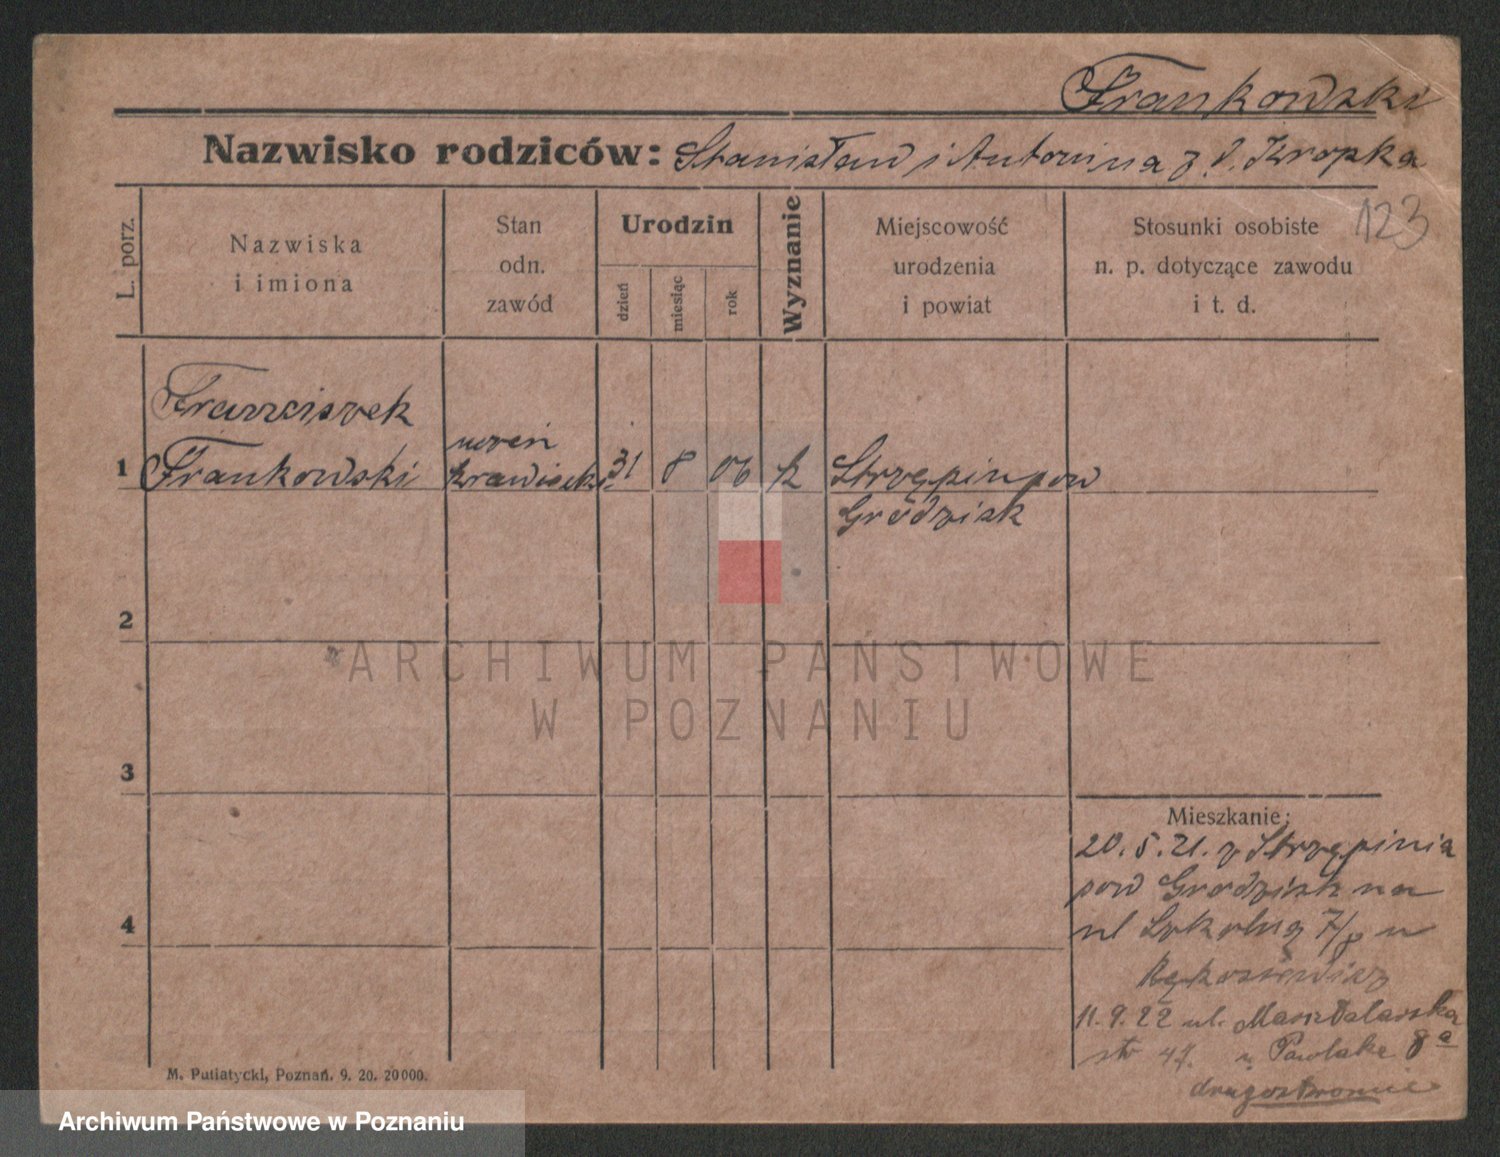 Frankowski
Nazwisko rodziców: Stanisław i Antonina z d. Kropka
123
L. porz.
Nazwiska
i imiona
Stan
odn.
zawód
Urodzin
dzień
miesiąc
rok
Wyznanie
Miejscowość
urodzenia
i powiat
Stosunki osobiste
n. p. dotyczące zawodu
i t. d.
Franciszek
1 Frankowski
uczeń
krawiecki
31 8 06 k
Strzępin pow
Grodzisk
2
3
4
ARCHIWUM PAŃSTWOWE
W POZNANIU
Mieszkanie:
20.5.21. z Strzępinia
pow Grodzisk na
ul 7/8 u
11.9.22 ul. Masztalarska
8a
u Pawlak
drugostronnie
M. Putiatycki, Poznań. 9. 20. 20000.
Archiwum Państwowe w Poznaniu